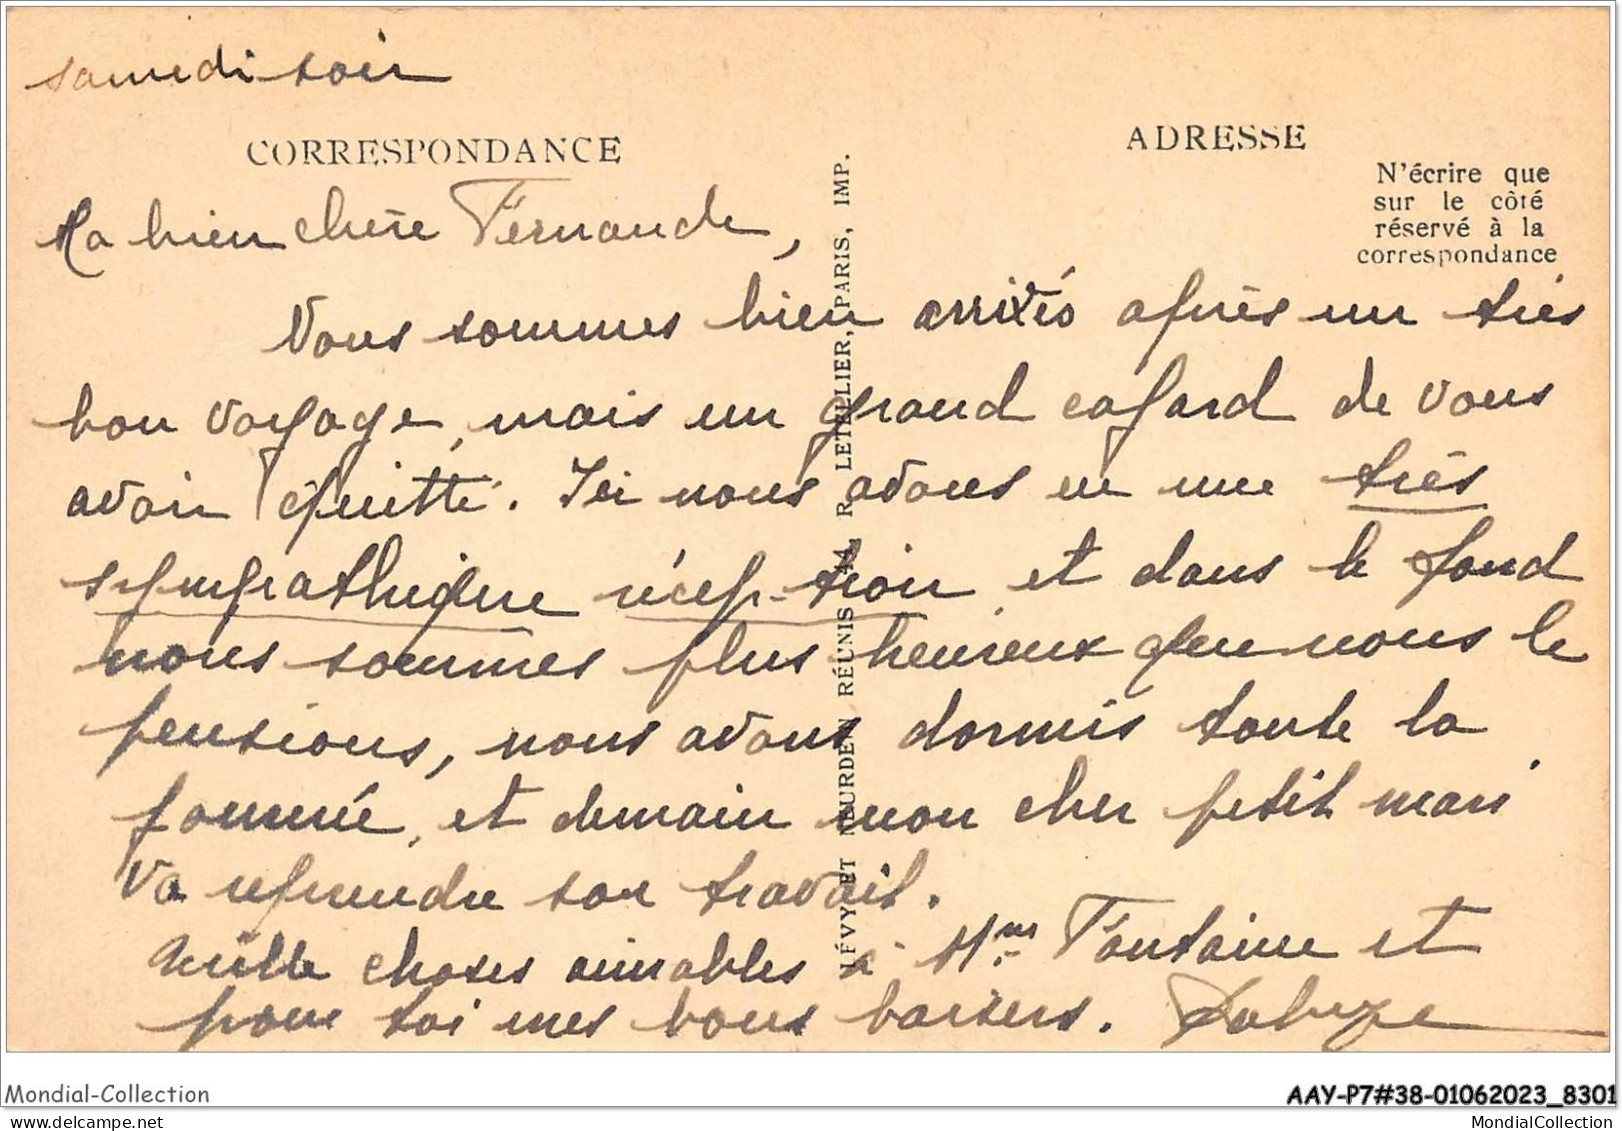 samedi soir
CORRESPONDANCE
ADRESSE
N'écrire que
sur le côté
réservé à la
correspondance
Ma bien chère Fernande,
Nous sommes bien arrivés après un très
bon voyage, mais un grand cafard de vous
avoir quitté. Ici nous avons eu une très
sympathique récep-tion et dans le fond
nous sommes plus heureux que nous le
pensions, nous avons dormis toute la
journée, et demain mon cher petit mari
va reprendre son travail.
Mille choses aimables à Mme Fontaine et
pour toi mes bons baisers.
LÉVY ET NEURDEIN RÉUNIS 44, R. LETELLIER, PARIS, IMP.
Mondial-Collection
AAY-P7#38-01062023_8301
www.delcampe.net
MondialCollection